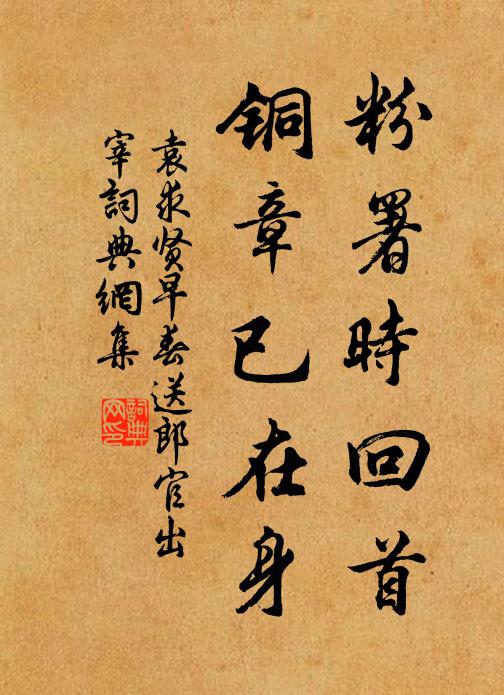 粉署時回首
铜章已在身
袁求贤早春送郎官出
宰詞典網集
詞典
网印